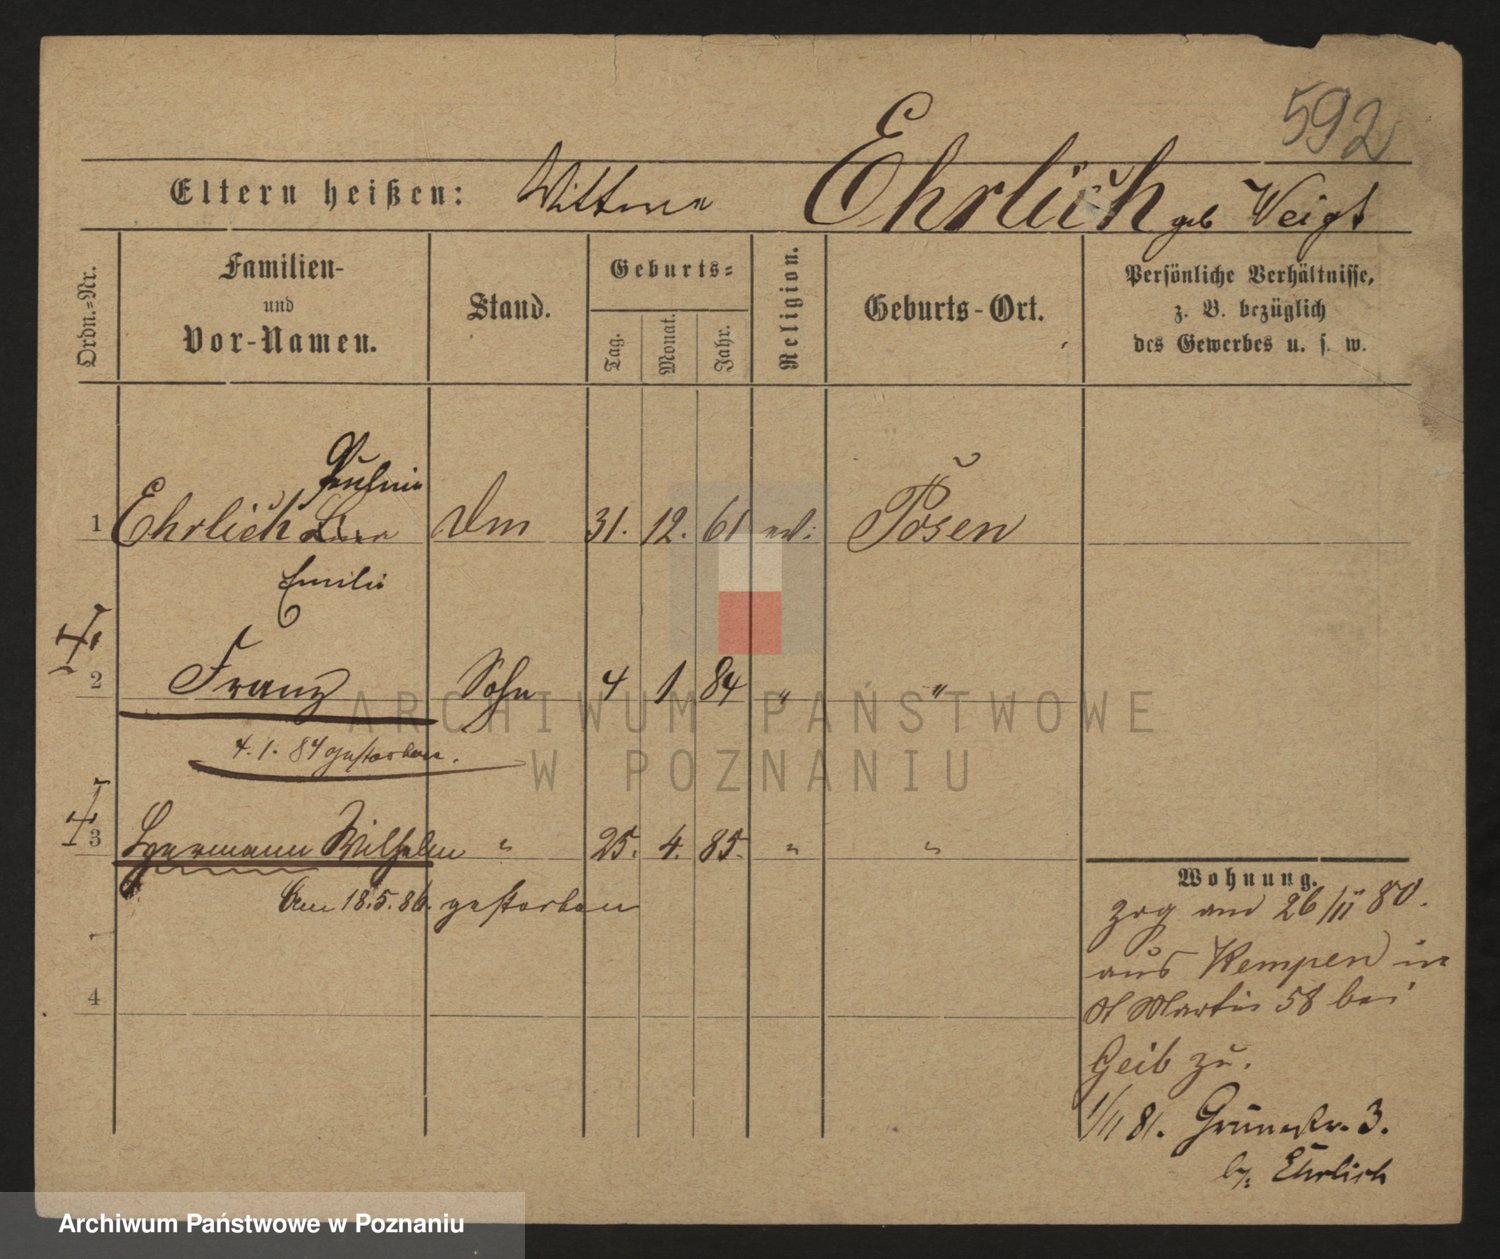 592
Eltern heißen: Wittwe Ehrlich geb Weigt
Ordn.-Nr.
Familien-
und
Vor-Namen.
Stand.
Geburts-
Tag.
Monat.
Jahr.
Religion.
Geburts-Ort.
Persönliche Verhältnisse,
z. B. bezüglich
des Gewerbes u. s. w.
Pauline
1 Ehrlich 31. 12. 61 Posen
Emilie
2 Franz Sohn 4 1 84 " "
4. 1. 84 gestorben.
3 Hermann Wilhelm " 25. 4. 85. " "
Am 18.5.86. gestorben
4
Wohnung.
zog am 26/11 80.
aus Kempen in
St Martin 58 bei
Geib zu.
1/11 81. Grünestr. 3.
by. Ehrlich
ARCHIWUM PAŃSTWOWE
W POZNANIU
Archiwum Państwowe w Poznaniu